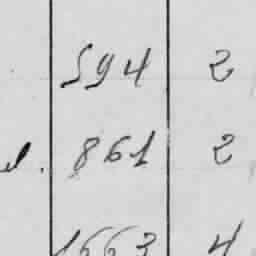 594 2
861 2
1663 4